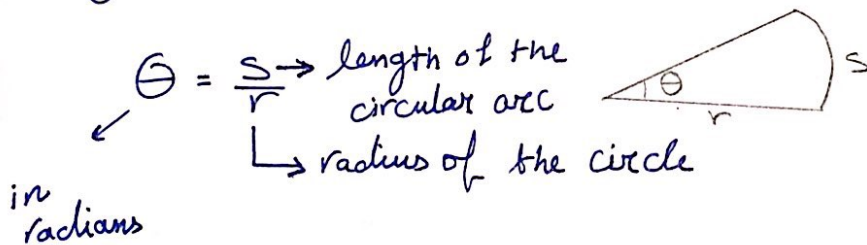 θ = s/r → length of the
circular arc
→ radius of the circle
in
radians
θ
r
s